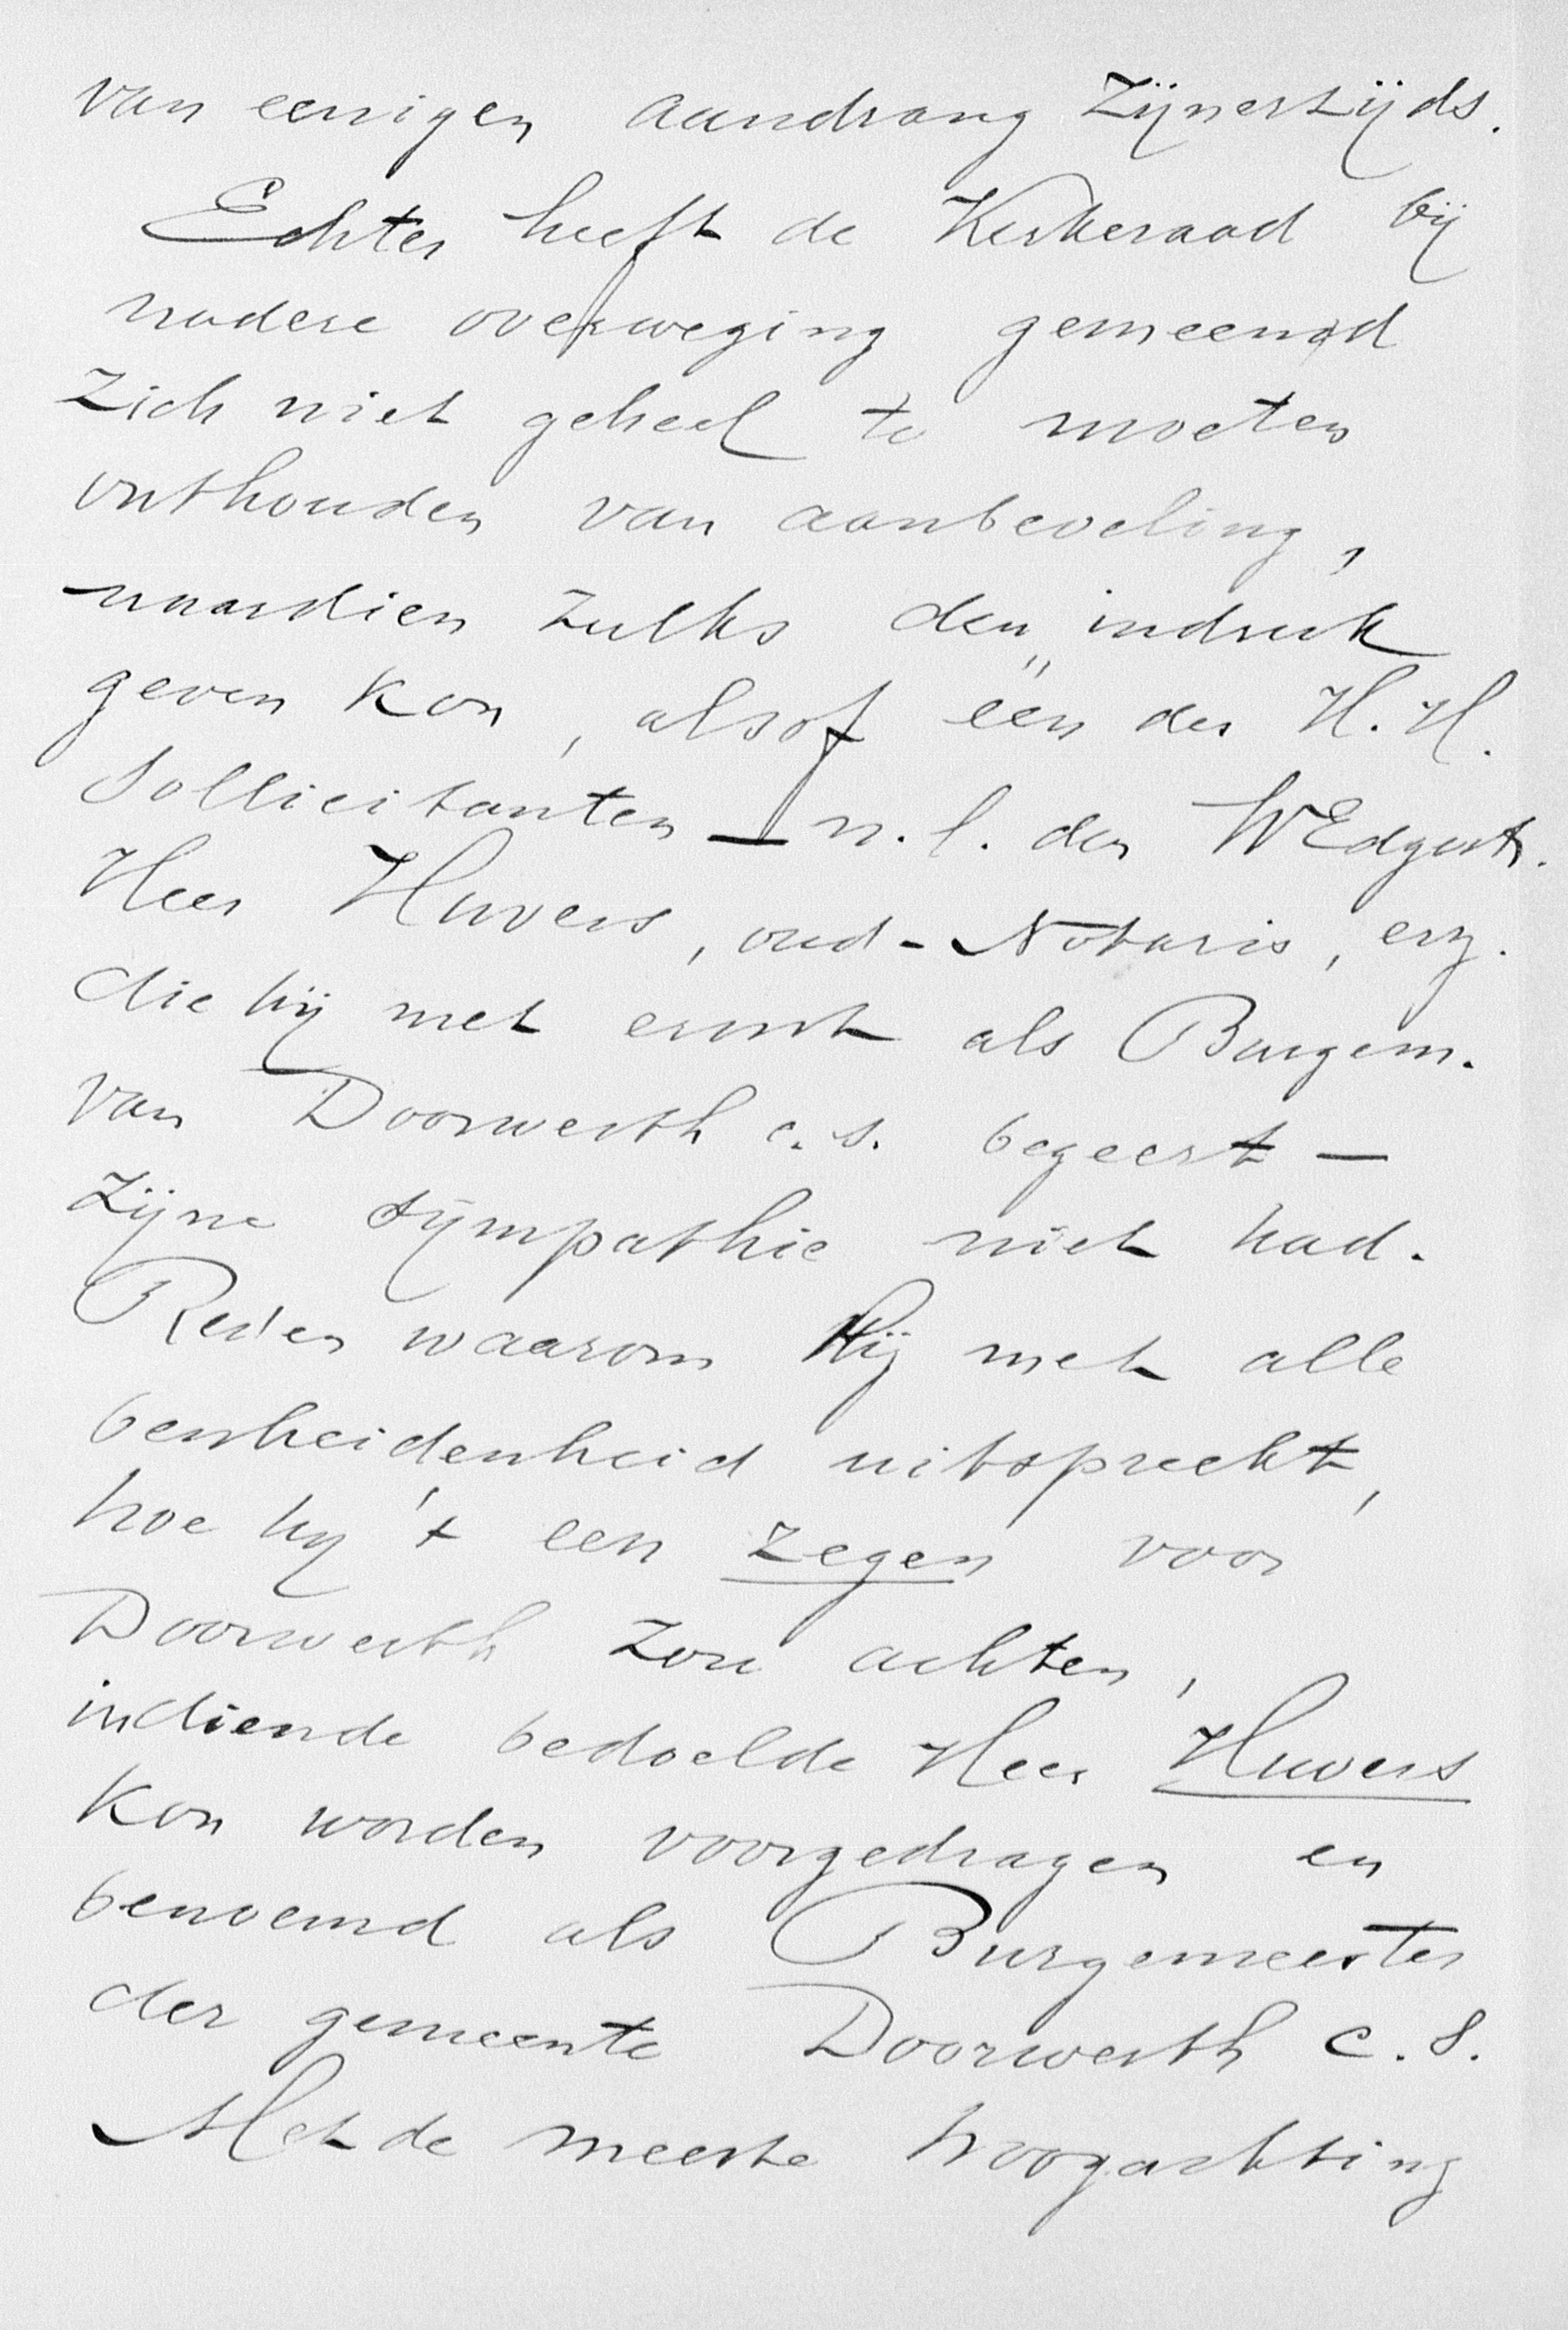 van eenigen aandrang Zijnerzijds.
Echter heeft de Kerkeraad bij
nadere overweging gemeend
Zich niet geheel te moeten
onthouden van aanbeveling,
naardien zulks den indruk
geven kon, alsof één der H.H.
Sollicitanten — n.l. den WEdgestr.
Heer Huvers, oud-Notaris, enz.
die hij met ernst als Burgem.
van Doorwerth c.s. begeert —
Zijne sympathie niet had.
Reden waarom Hij met alle
bescheidenheid uitspreekt,
hoe hij 't een zegen voor
Doorwerth zou achten,
indiende bedoelde Heer Huvers
kon worden voorgedragen en
benoemd als Burgemeester
der gemeente Doorwerth c.s.
Met de meeste hoogachting